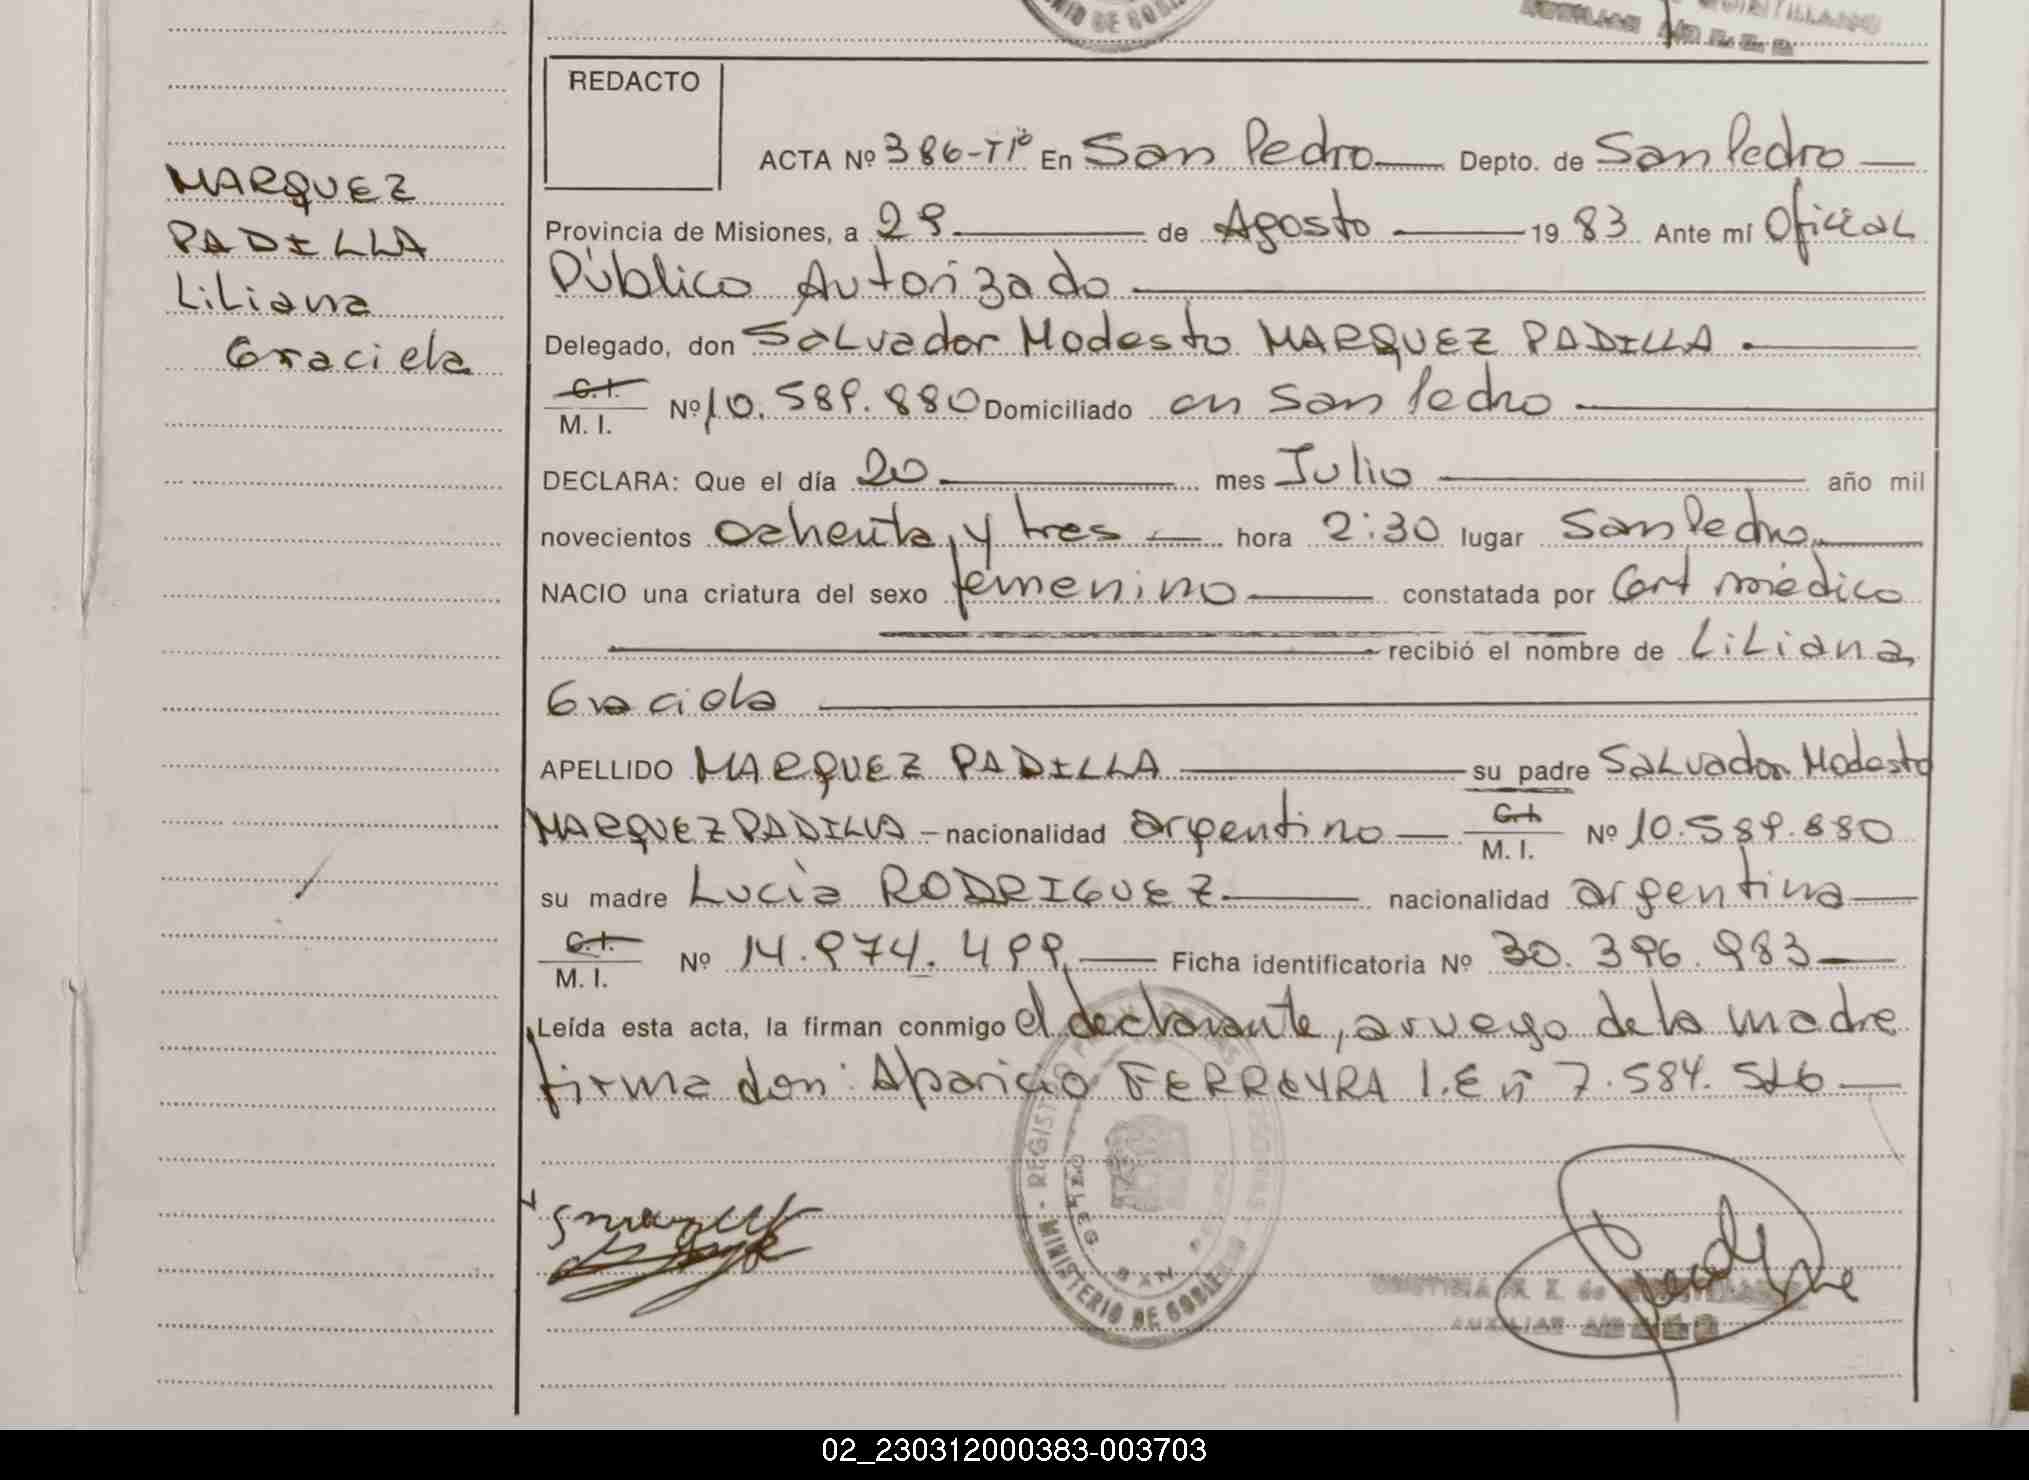 MINISTERIO DE GOBIERNO
REDACTO
ACTA Nº 386-Tº En San Pedro Depto. de San Pedro
Provincia de Misiones, a 29 de Agosto 19 83 Ante mí Oficial
Público Autorizado
Delegado, don Salvador Modesto MARQUEZ PADILLA
C. I.
M. I. Nº 10.589.880 Domiciliado en San Pedro
DECLARA: Que el día 20 mes Julio año mil
novecientos ochenta y tres hora 2:30 lugar San Pedro
NACIO una criatura del sexo femenino constatada por Cert médico
recibió el nombre de Liliana
Graciela
APELLIDO MARQUEZ PADILLA su padre Salvador Modesto
MARQUEZ PADILLA - nacionalidad argentino C. I. M. I. Nº 10.589.880
su madre Lucía RODRIGUEZ nacionalidad argentina
C. I.
M. I. Nº 14.974.499 Ficha identificatoria Nº 30.396.983
Leída esta acta, la firman conmigo el declarante, a ruego de la madre
firma don: Aparicio FERREYRA I.E nº 7.584.516
MARQUEZ
PADILLA
Liliana
Graciela
MINISTERIO DE GOBIERNO
02_230312000383-003703